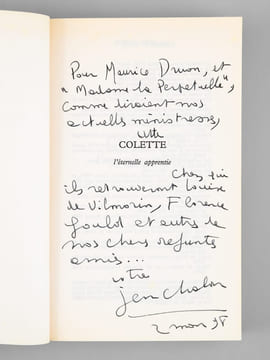 Pour Maurice Druon, et
"Madame la Perpétuelle",
comme diraient nos
actuelles ministresses,
cette
COLETTE
l'éternelle apprentie
Chez qui
ils retrouveront Louise
de Vilmorin, Florence
Gould et autres de
nos chers défunts
amis...
votre
Jean Chalon
2 mars 98